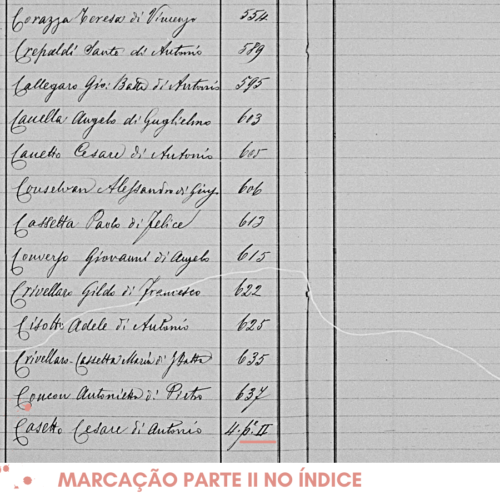 Corazza Teresa di Vincenzo 554
Crepaldi Sante di Antonio 589
Callegaro Gio: Batta di Antonio 595
Canella Angelo di Guglielmo 603
Canetto Cesare di Antonio 605
Conselvan Alessandro di Giusp. 606
Cassetta Paolo di Felice 613
Converso Giovanni di Angelo 615
Crivellaro Gildo di Francesco 622
Cisotto Adele di Antonio 625
Crivellaro-Cassetta Maria di G Batta 635
Concon Antonietta di Pietro 637
Casetto Cesare di Antonio 4. pe. II
MARCAÇÃO PARTE II NO ÍNDICE